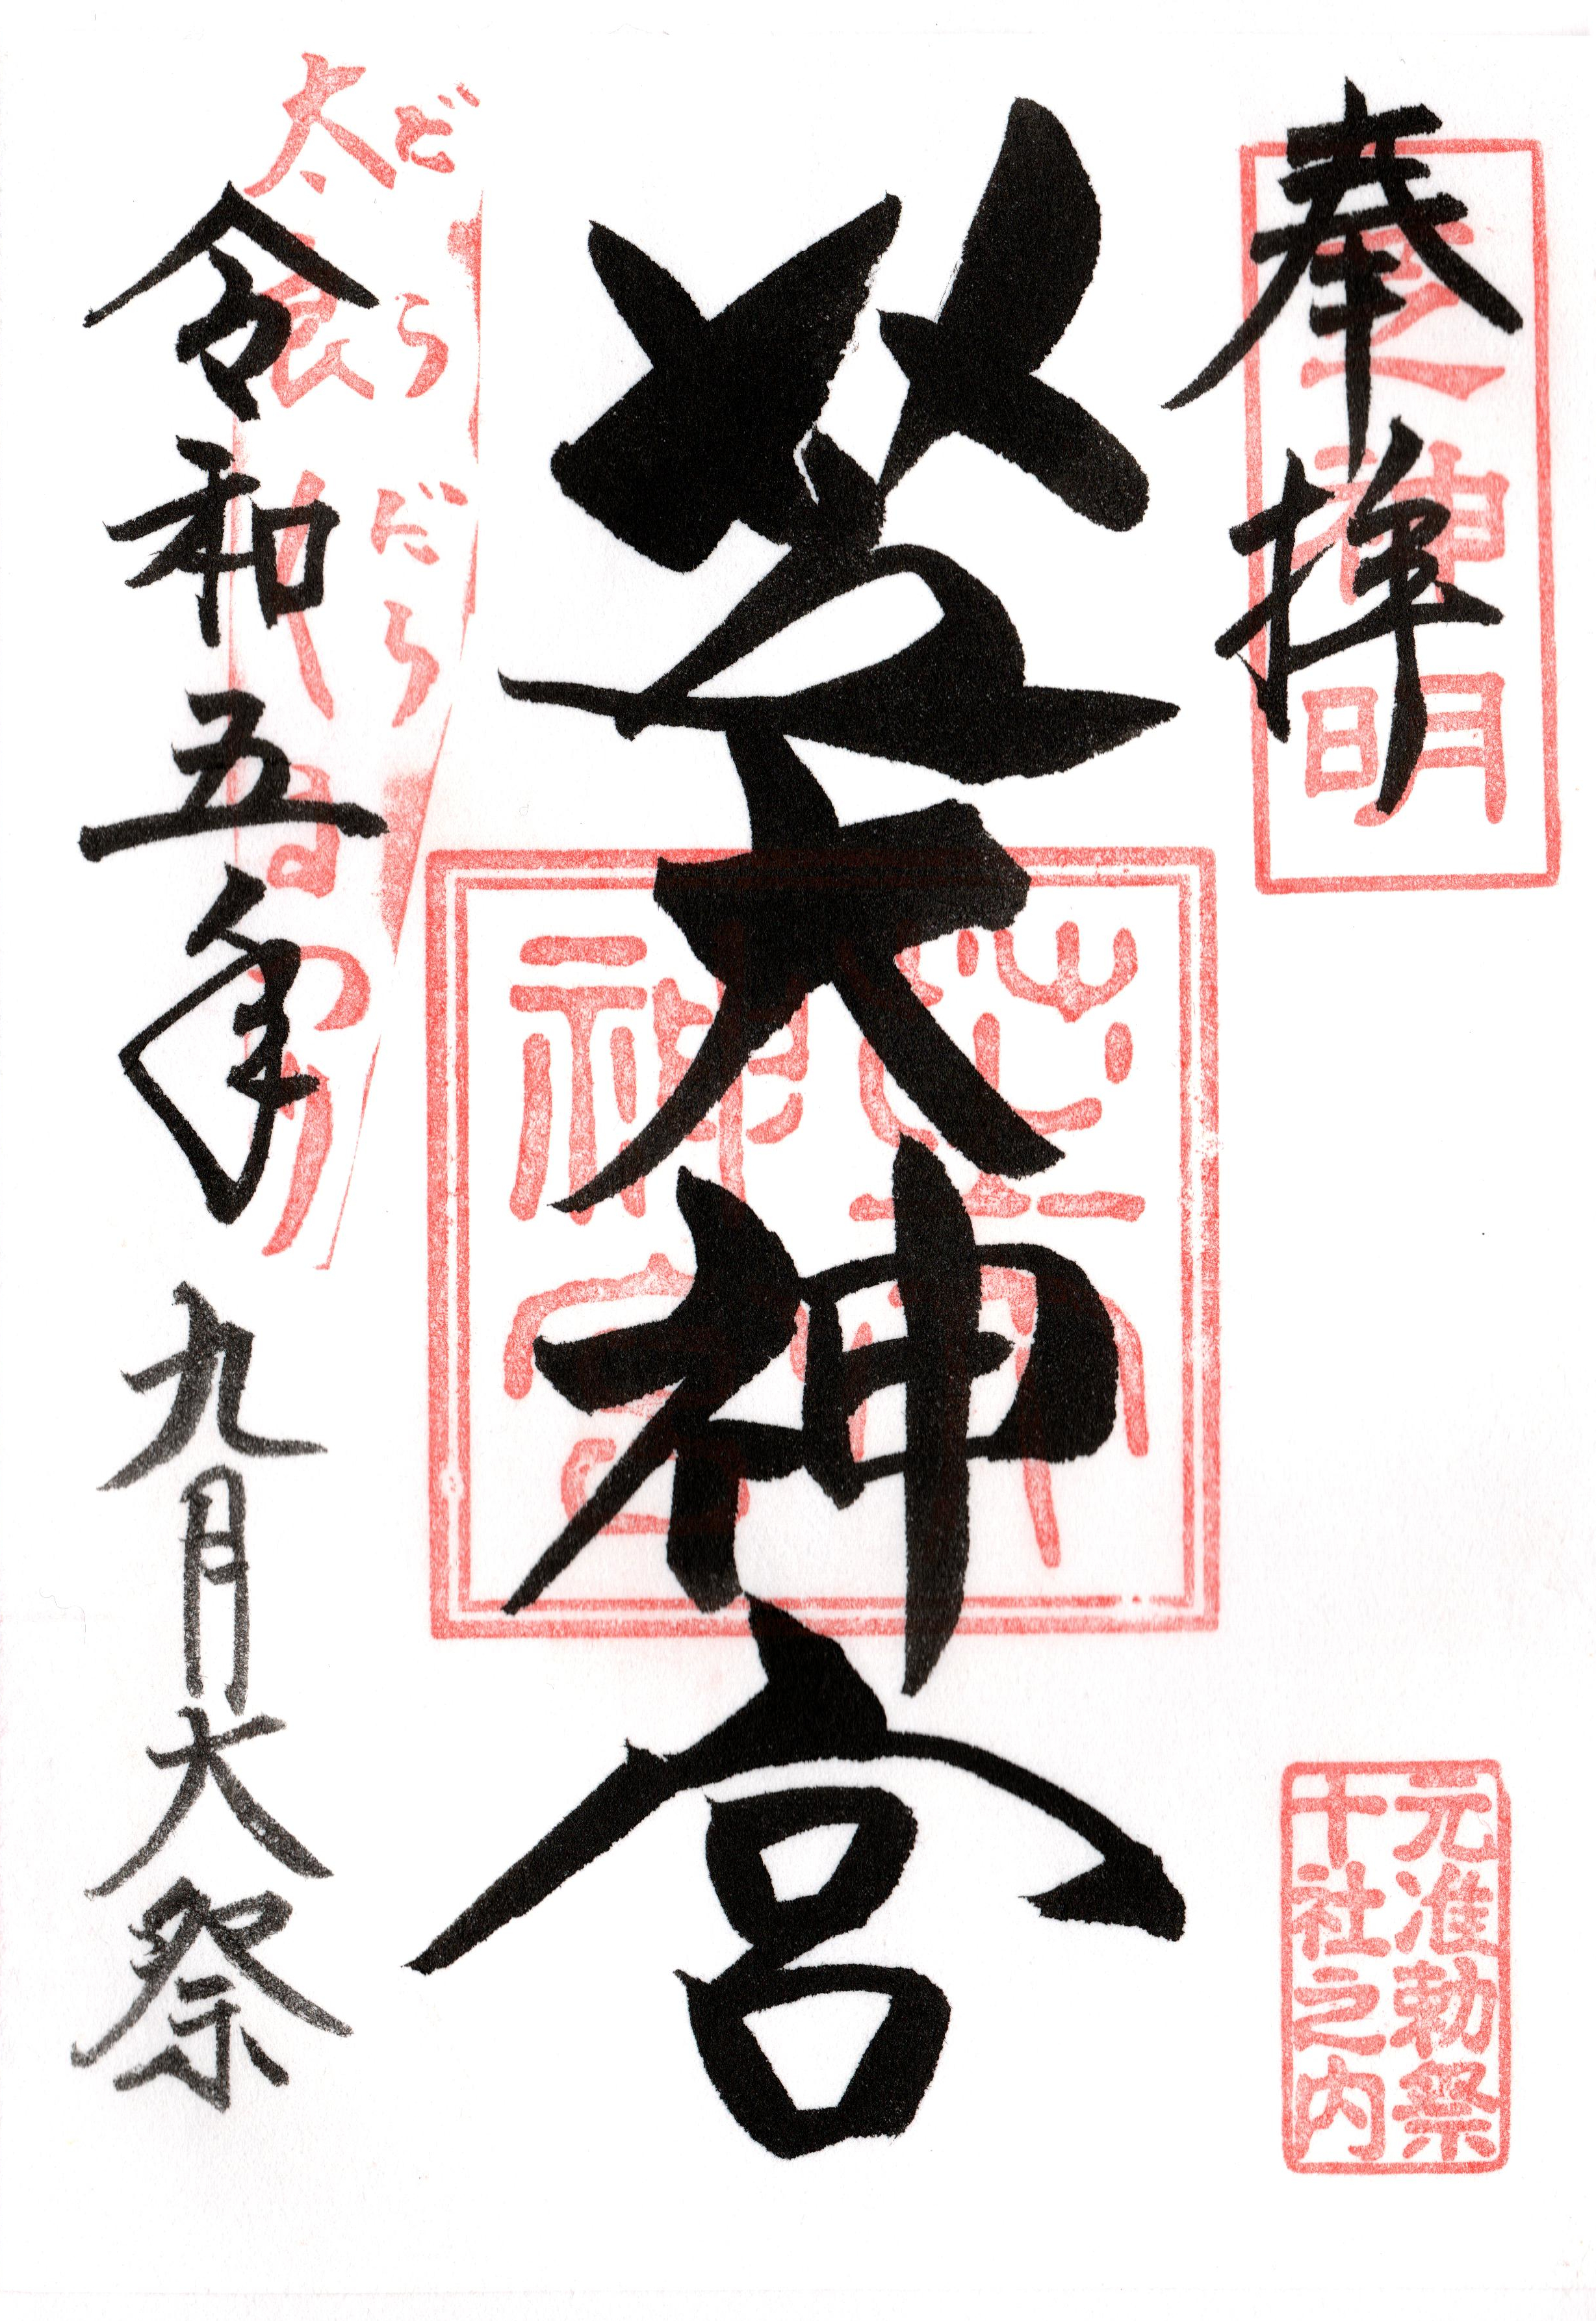 奉拝
芝神明
元准勅祭
十社之内
芝大神宮
芝大
神宮
だらだら
太良
令和五年 九月大祭